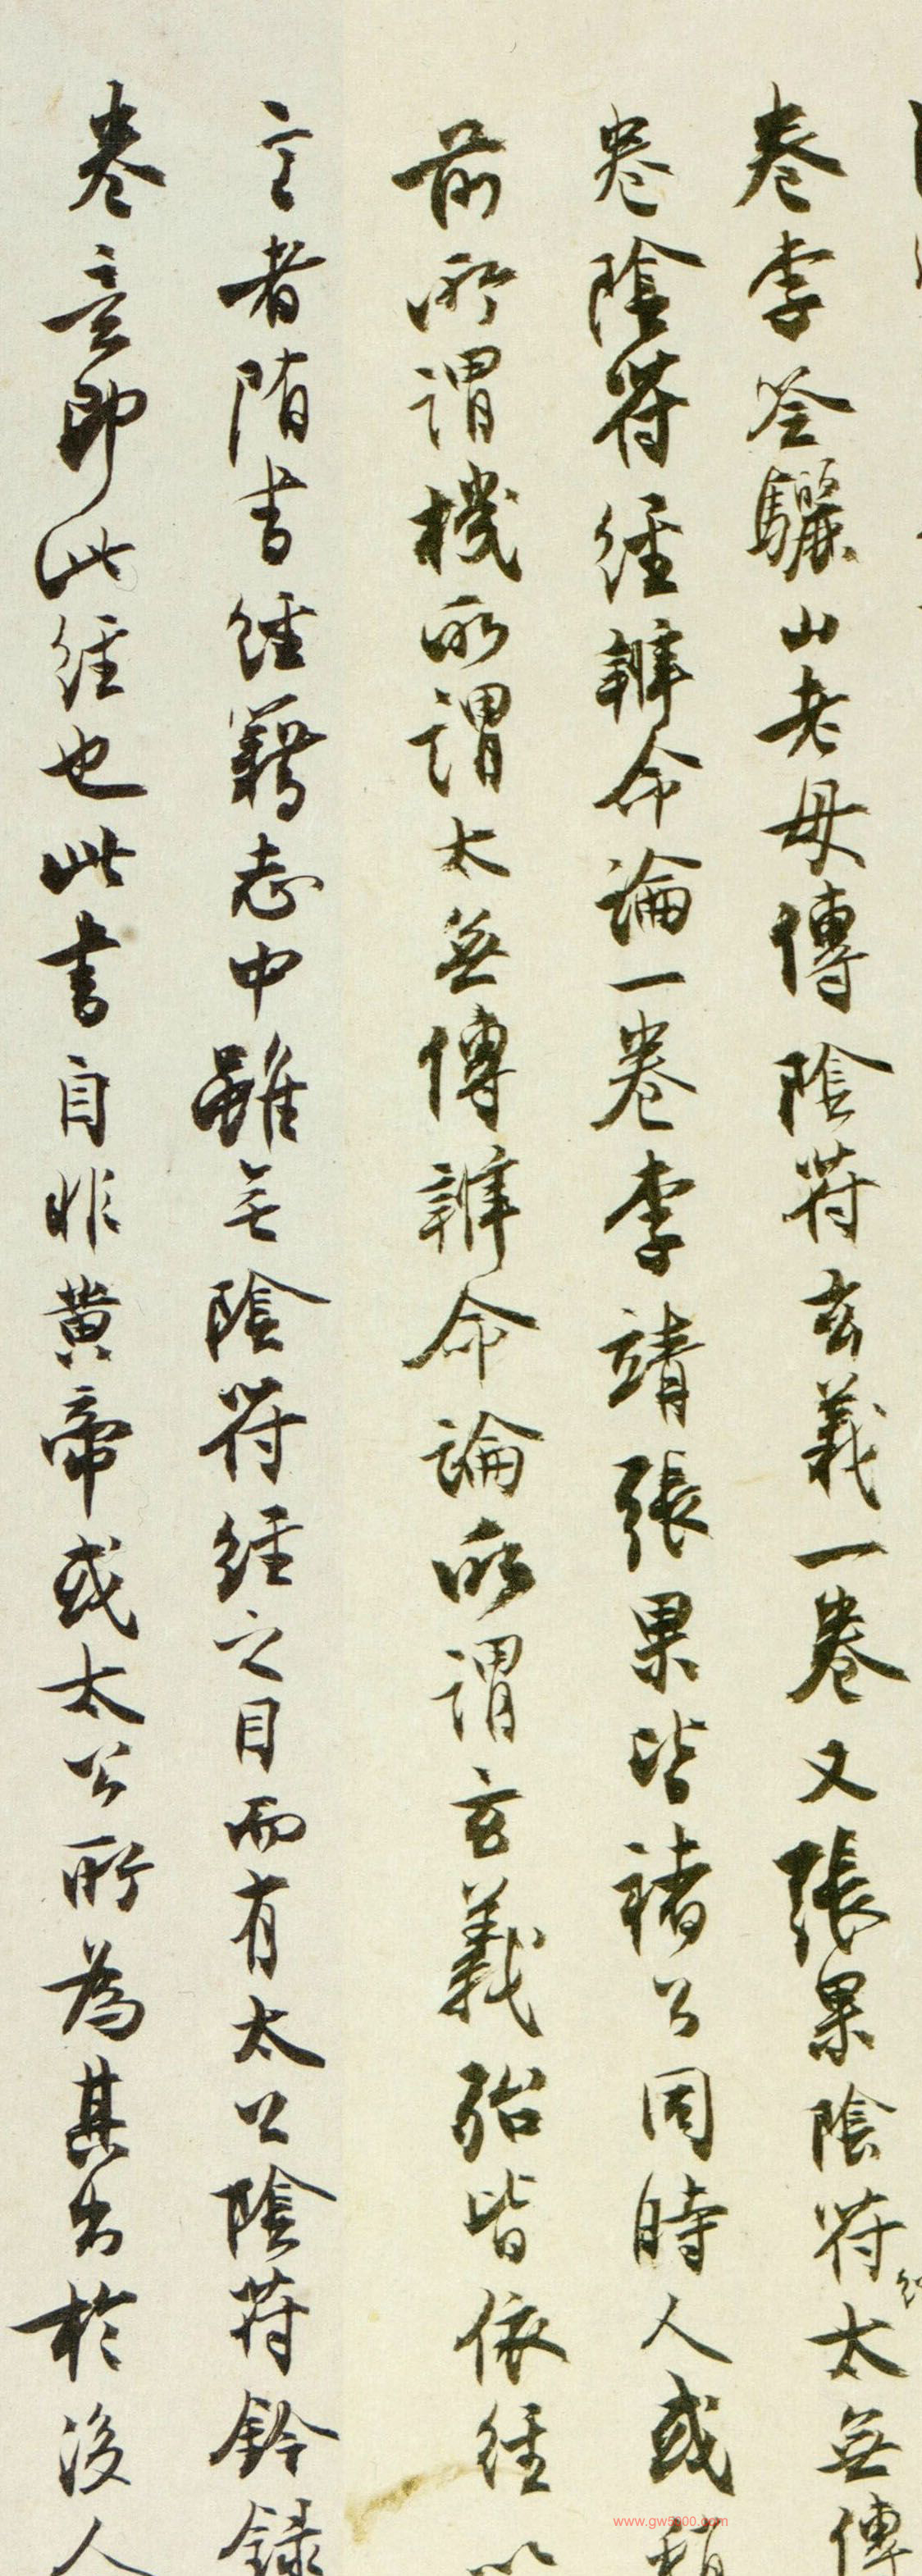 卷李筌驪山老母傳陰符玄義一卷又張果陰符太無傳
經
卷陰符經辨命論一卷李靖張果皆褚公同時人或
前所謂機所謂太無傳辨命論所謂玄義殆皆依經以
言者隋書經籍志中雖无陰符經之目而有太公陰符鈐録
卷意即此經也此書自非黄帝或太公所為其出於後人
www.gw5000.com